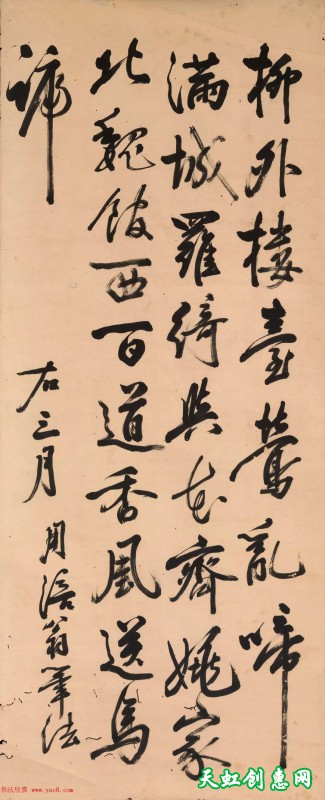 柳外樓臺鶯亂啼
滿城羅綺與花齊姚家
北魏館西百道香風送馬
蹄
右三月 用涪翁筆法
书法欣赏 www.yac8.com
天虹创惠网